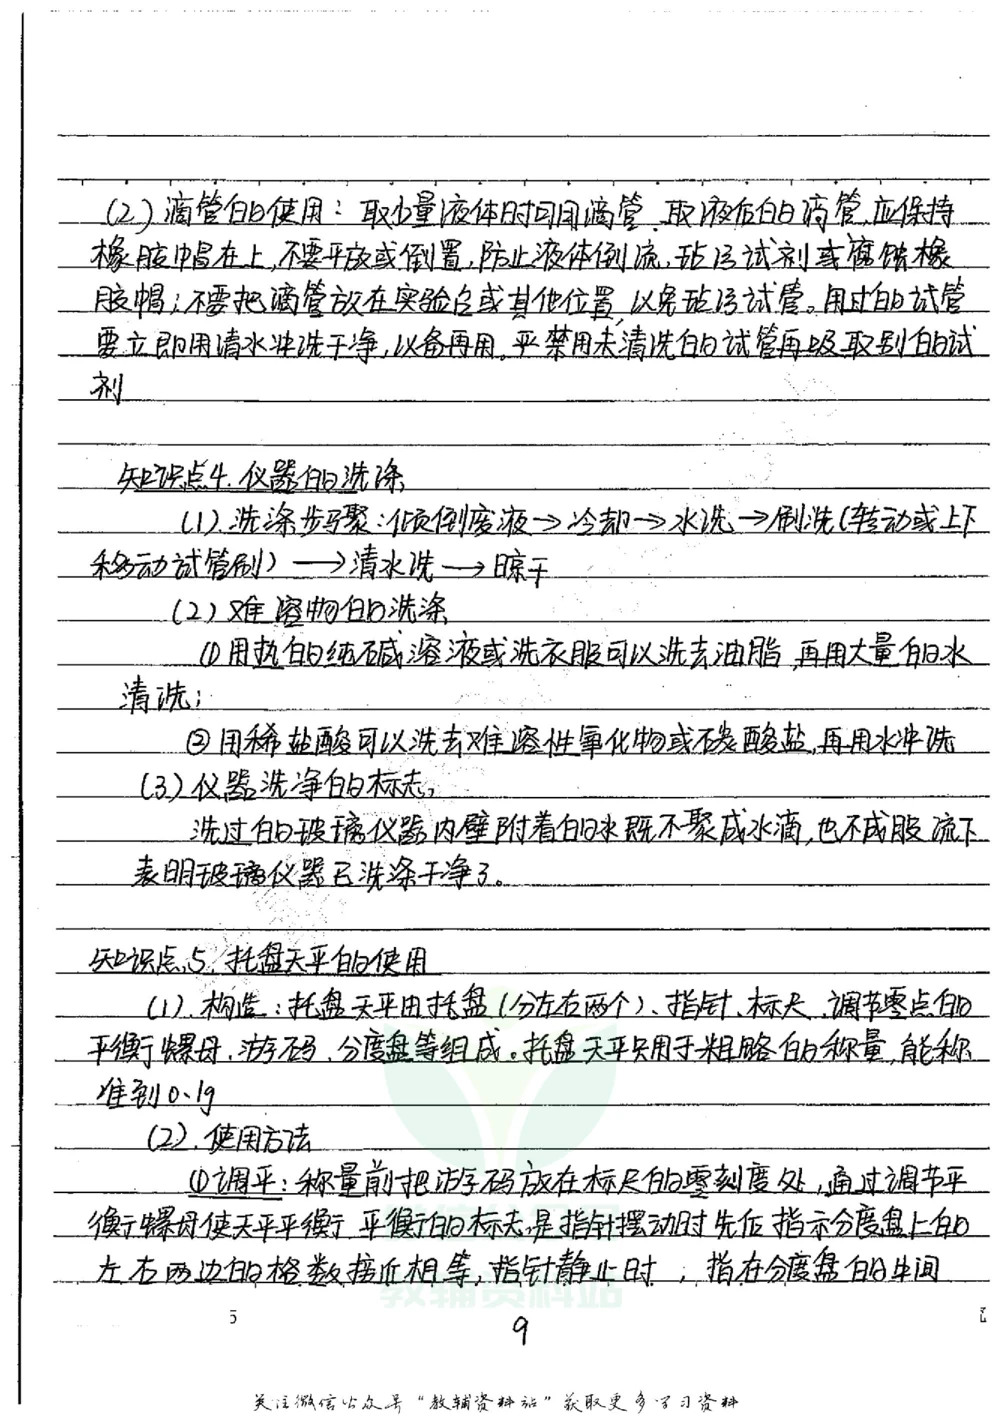 (2)滴管的使用：取少量液体时可用滴管、取液后的滴管,应保持
橡胶帽在上,不要平放或倒置,防止液体倒流,玷污试剂或腐蚀橡
胶帽;不要把滴管放在实验台或其他位置,以免玷污试管。用过的试管
要立即用清水冲洗干净,以备再用。严禁用未清洗的试管再吸取别的试
剂
知识点4.仪器的洗涤
(1).洗涤步骤:倾倒废液→冷却→水洗→刷洗(转动或上下
移动试管刷)→清水洗→晾干
(2)难溶物的洗涤
①用热的纯碱溶液或洗衣服可以洗去油脂,再用大量的水
清洗;
②用稀盐酸可以洗去难溶性氧化物或碳酸盐,再用水冲洗
(3)仪器洗净的标志,
洗过的玻璃仪器内壁附着的水既不聚成水滴,也不成股流下
表明玻璃仪器已洗涤干净了。
知识点5.托盘天平的使用
(1).构造:托盘天平由托盘(分左右两个)、指针、标尺、调节零点的
平衡螺母、游码、分度盘等组成。托盘天平只用于粗略的称量,能称
准到0.1g
(2).使用方法
①调平:称量前把游码放在标尺的零刻度处,通过调节平
衡螺母使天平平衡 平衡的标志是指针摆动时先位 指示分度盘上的
左右两边的格数接近相等,指针静止时;指在分度盘的中间
5
9
关注微信公众号“教辅资料站”获取更多学习资料
教辅资料站